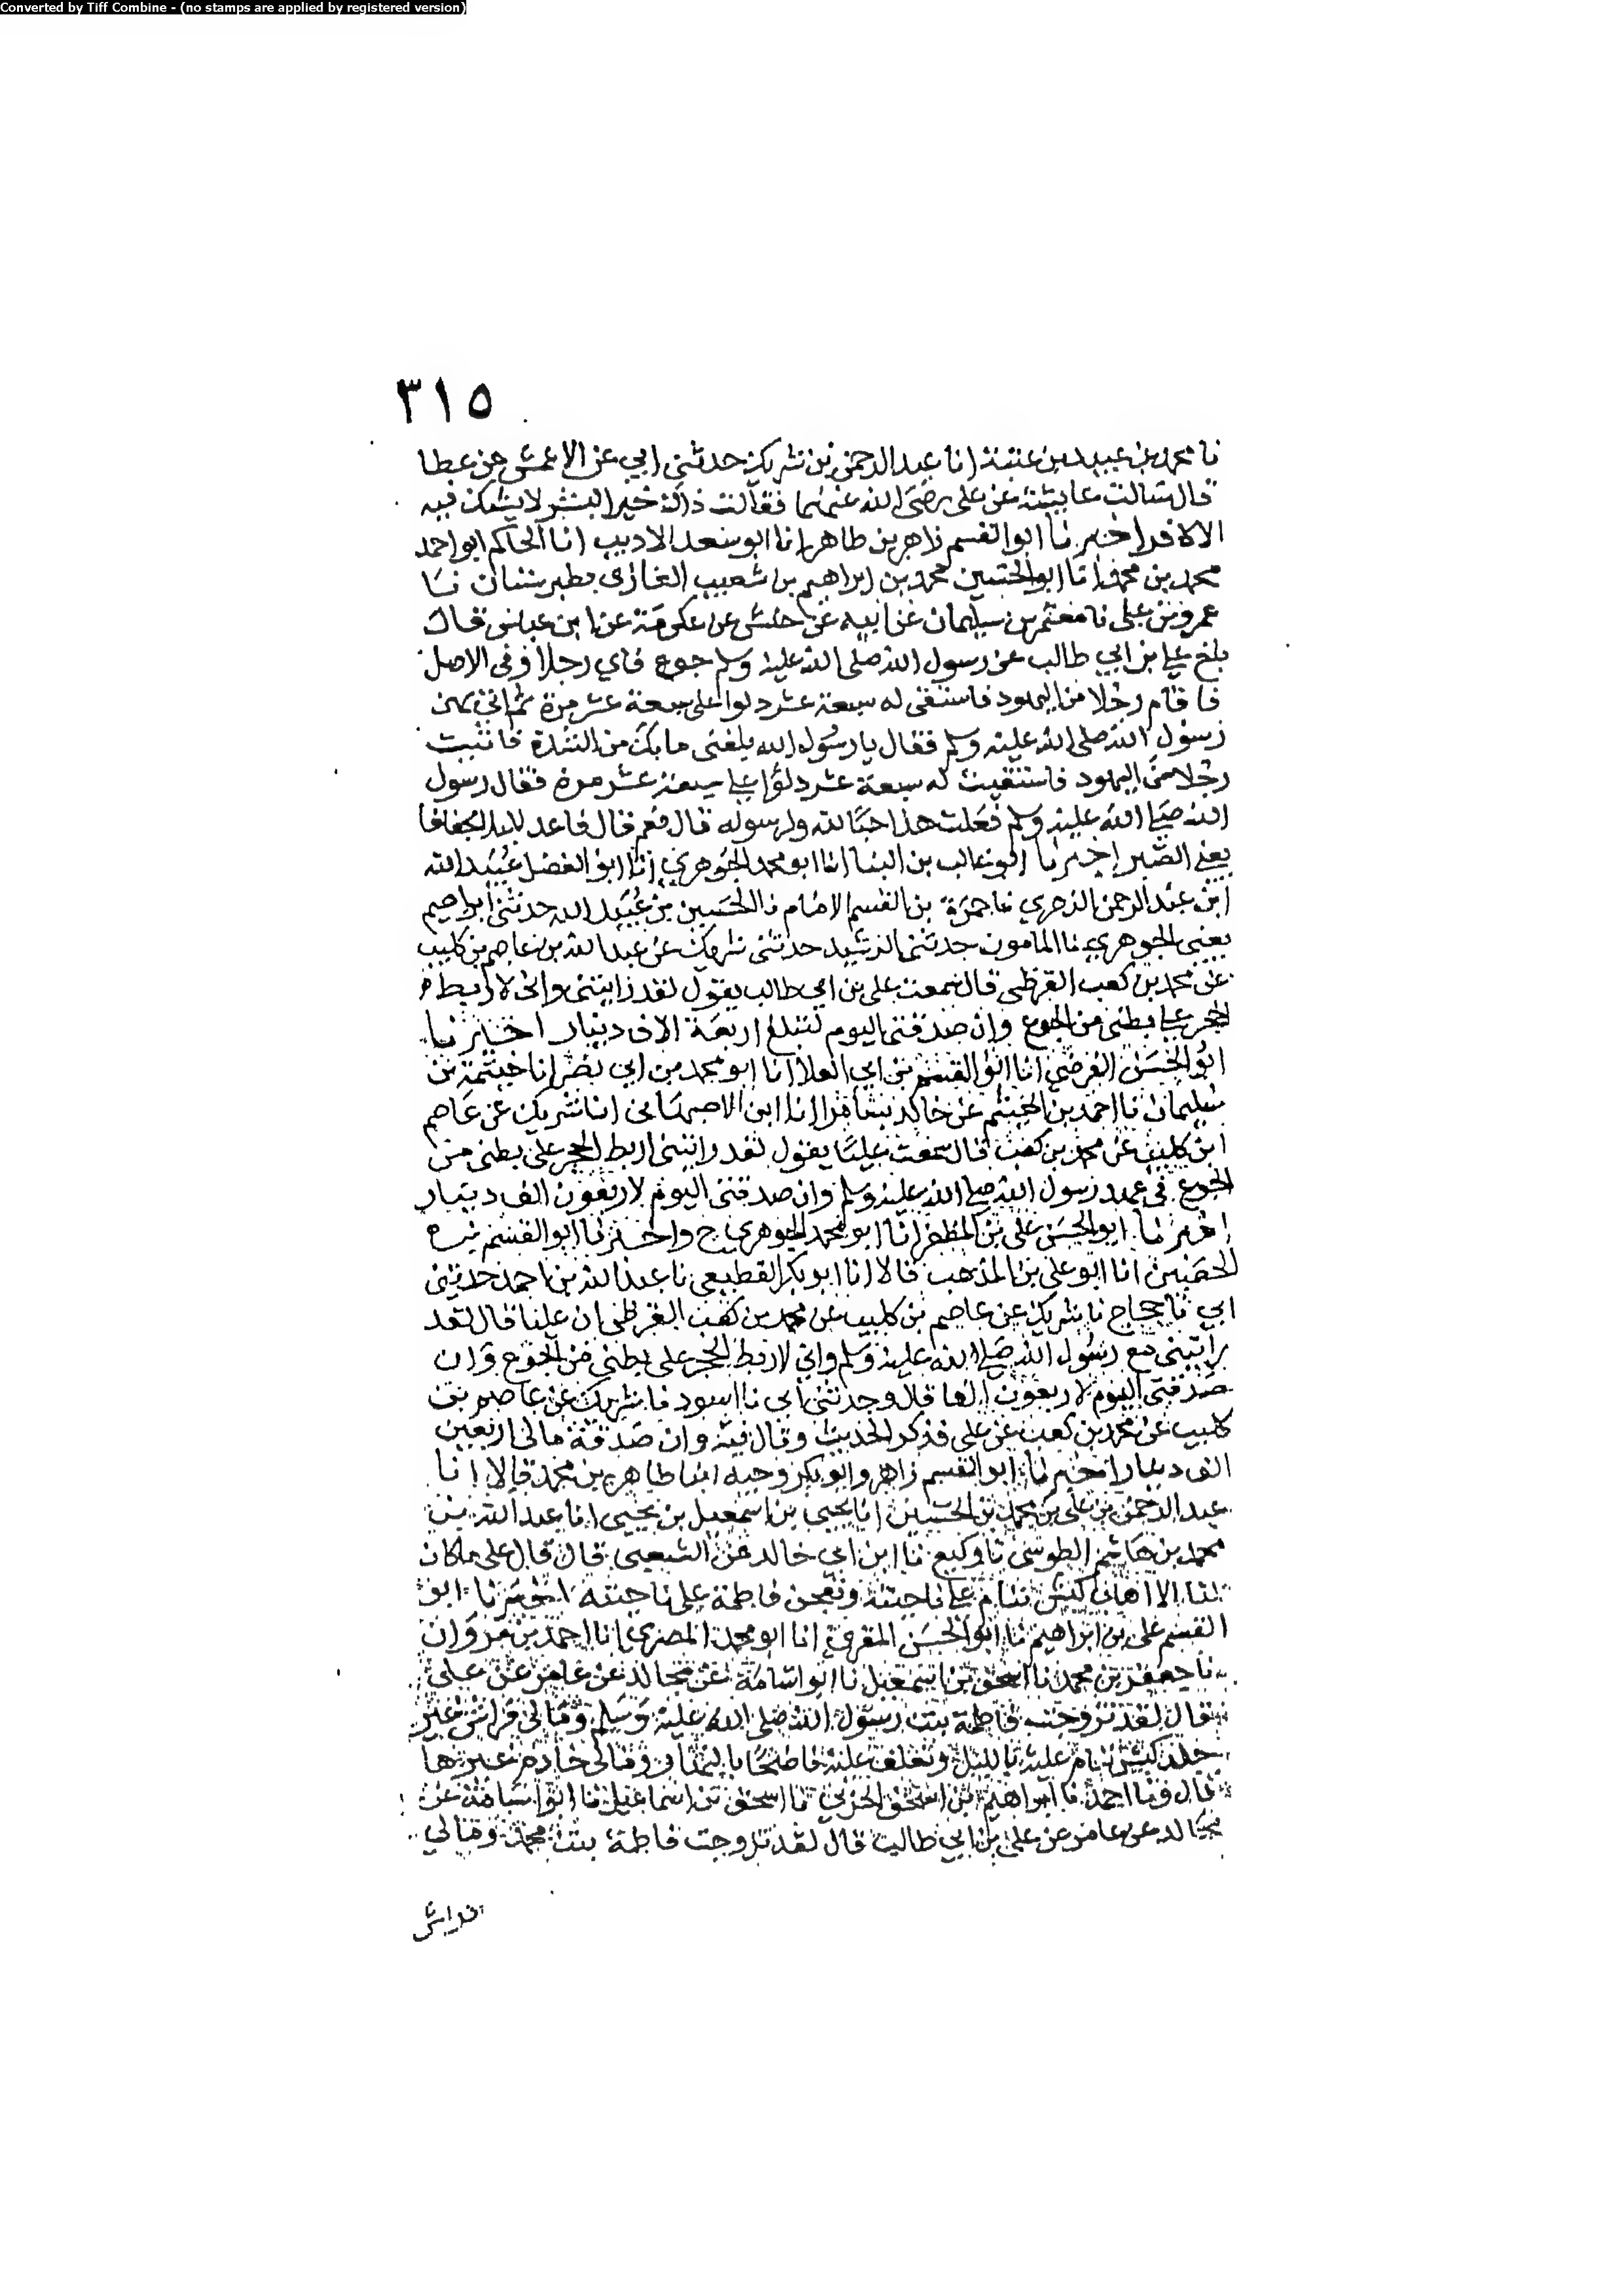 Converted by Tiff Combine - (no stamps are applied by registered version)
٣١٥
نا محمد بن عبيد بن عتبة انا عبد الرحمن بن شريك حدثني ابي عن الاعمش عن عطا
قال سالت عايشة عن علي رضي الله عنهما فقالت ذاك خير البشر لا يشك فيه
الا كافر اخبرنا ابو القسم زاهر بن طاهر انا ابو سعد الاديب انا الحاكم ابو احمد
محمد بن محمد انا ابو الحسين محمد بن ابراهيم بن شعيب الغازي بطبرستان نا
عمرو بن علي نا معتمر بن سليمان عن ابيه عن حنش عن عكرمة عن ابن عباس قال
بلغ علي بن ابي طالب عن رسول الله صلى الله عليه وسلم جوع فاي رجلا وفي الاصل
فاقام رجلا من اليهود فاستقى له سبعة عشر دلوا على سبعة عشر مرة ثم اتى بهن
رسول الله صلى الله عليه وسلم فقال يا رسول الله بلغني ما بك من الشدة فاتيت
رجلا من اليهود فاستقيت له سبعة عشر دلوا على سبعة عشر مرة فقال رسول
الله صلى الله عليه وسلم فعلت هذا حبا لله ولرسوله قال نعم قال فاعد للبلا تجفافا
يعني الصبر اخبرنا ابو غالب بن البنا انا ابو محمد الجوهري انا ابو الفضل عبيد الله
ابن عبد الرحمن الزهري نا حمزة بن القسم الامام نا الحسين بن عبيد الله حدثني ابراهيم
يعني الجوهري نا المامون حدثني الرشيد حدثني شريك عن عبد الله بن عاصم بن كليب
عن محمد بن كعب القرظي قال سمعت علي بن ابي طالب يقول لقد رايتني واني لاربط
الحجر على بطني من الجوع وان صدقتي اليوم لتبلغ اربعة الاف دينار اخبرنا
ابو الحسن الفرضي انا ابو القسم بن ابي العلا انا ابو محمد بن ابي نصر انا خيثمة بن
سليمان نا احمد بن الهيثم عن خالد بسامرا انا ابن الاصبهاني انا شريك عن عاصم
ابن كليب عن محمد بن كعب قال سمعت عليا يقول لقد رايتني اربط الحجر على بطني من
الجوع في عهد رسول الله صلى الله عليه وسلم وان صدقتي اليوم لاربعون الف دينار
اخبرنا ابو الحسن علي بن المظفر انا ابو محمد الجوهري ح واخبرنا ابو القسم بن
الحصين انا ابو علي بن المذهب قالا انا ابو بكر القطيعي نا عبد الله بن احمد حدثني
ابي نا حجاج نا شريك عن عاصم بن كليب عن محمد بن كعب القرظي ان عليا قال لقد
رايتني مع رسول الله صلى الله عليه وسلم واني لاربط الحجر على بطني من الجوع وان
صدقتي اليوم لاربعون الفا قال وحدثني ابي نا اسود نا شريك عن عاصم بن
كليب عن محمد بن كعب عن علي فذكر الحديث وقال فيه وان صدقة مالي اربعين
الف دينار اخبرنا ابو القسم زاهر وابو بكر وجيه ابنا طاهر بن محمد قالا انا
عبد الرحمن بن علي بن محمد بن الحسين انا يحيى بن اسمعيل بن يحيى انا عبد الله بن
محمد بن هاشم الطوسي نا وكيع نا ابن ابي خالد عن الشعبي قال قال علي ما كان
لنا الا اهاب كبش ننام على ناحيته وتعجن فاطمة على ناحيته اخبرنا ابو
القسم علي بن ابراهيم نا ابو الحسن المقرئ انا ابو محمد المصري انا احمد بن مروان
نا جعفر بن محمد نا اسحق بن اسمعيل نا ابو اسامة عن مجالد عن عامر عن علي
قال لقد تزوجت فاطمة بنت رسول الله صلى الله عليه وسلم ومالي فراش غير
جلد كبش ننام عليه بالليل ونعلف عليه ناضحنا بالنهار ومالي خادم غيرها
قال ونا احمد نا ابراهيم بن اسحق الحربي نا اسحق بن اسماعيل نا ابو اسامة عن
مجالد عن عامر عن علي بن ابي طالب قال لقد تزوجت فاطمة بنت محمد ومالي
فراش